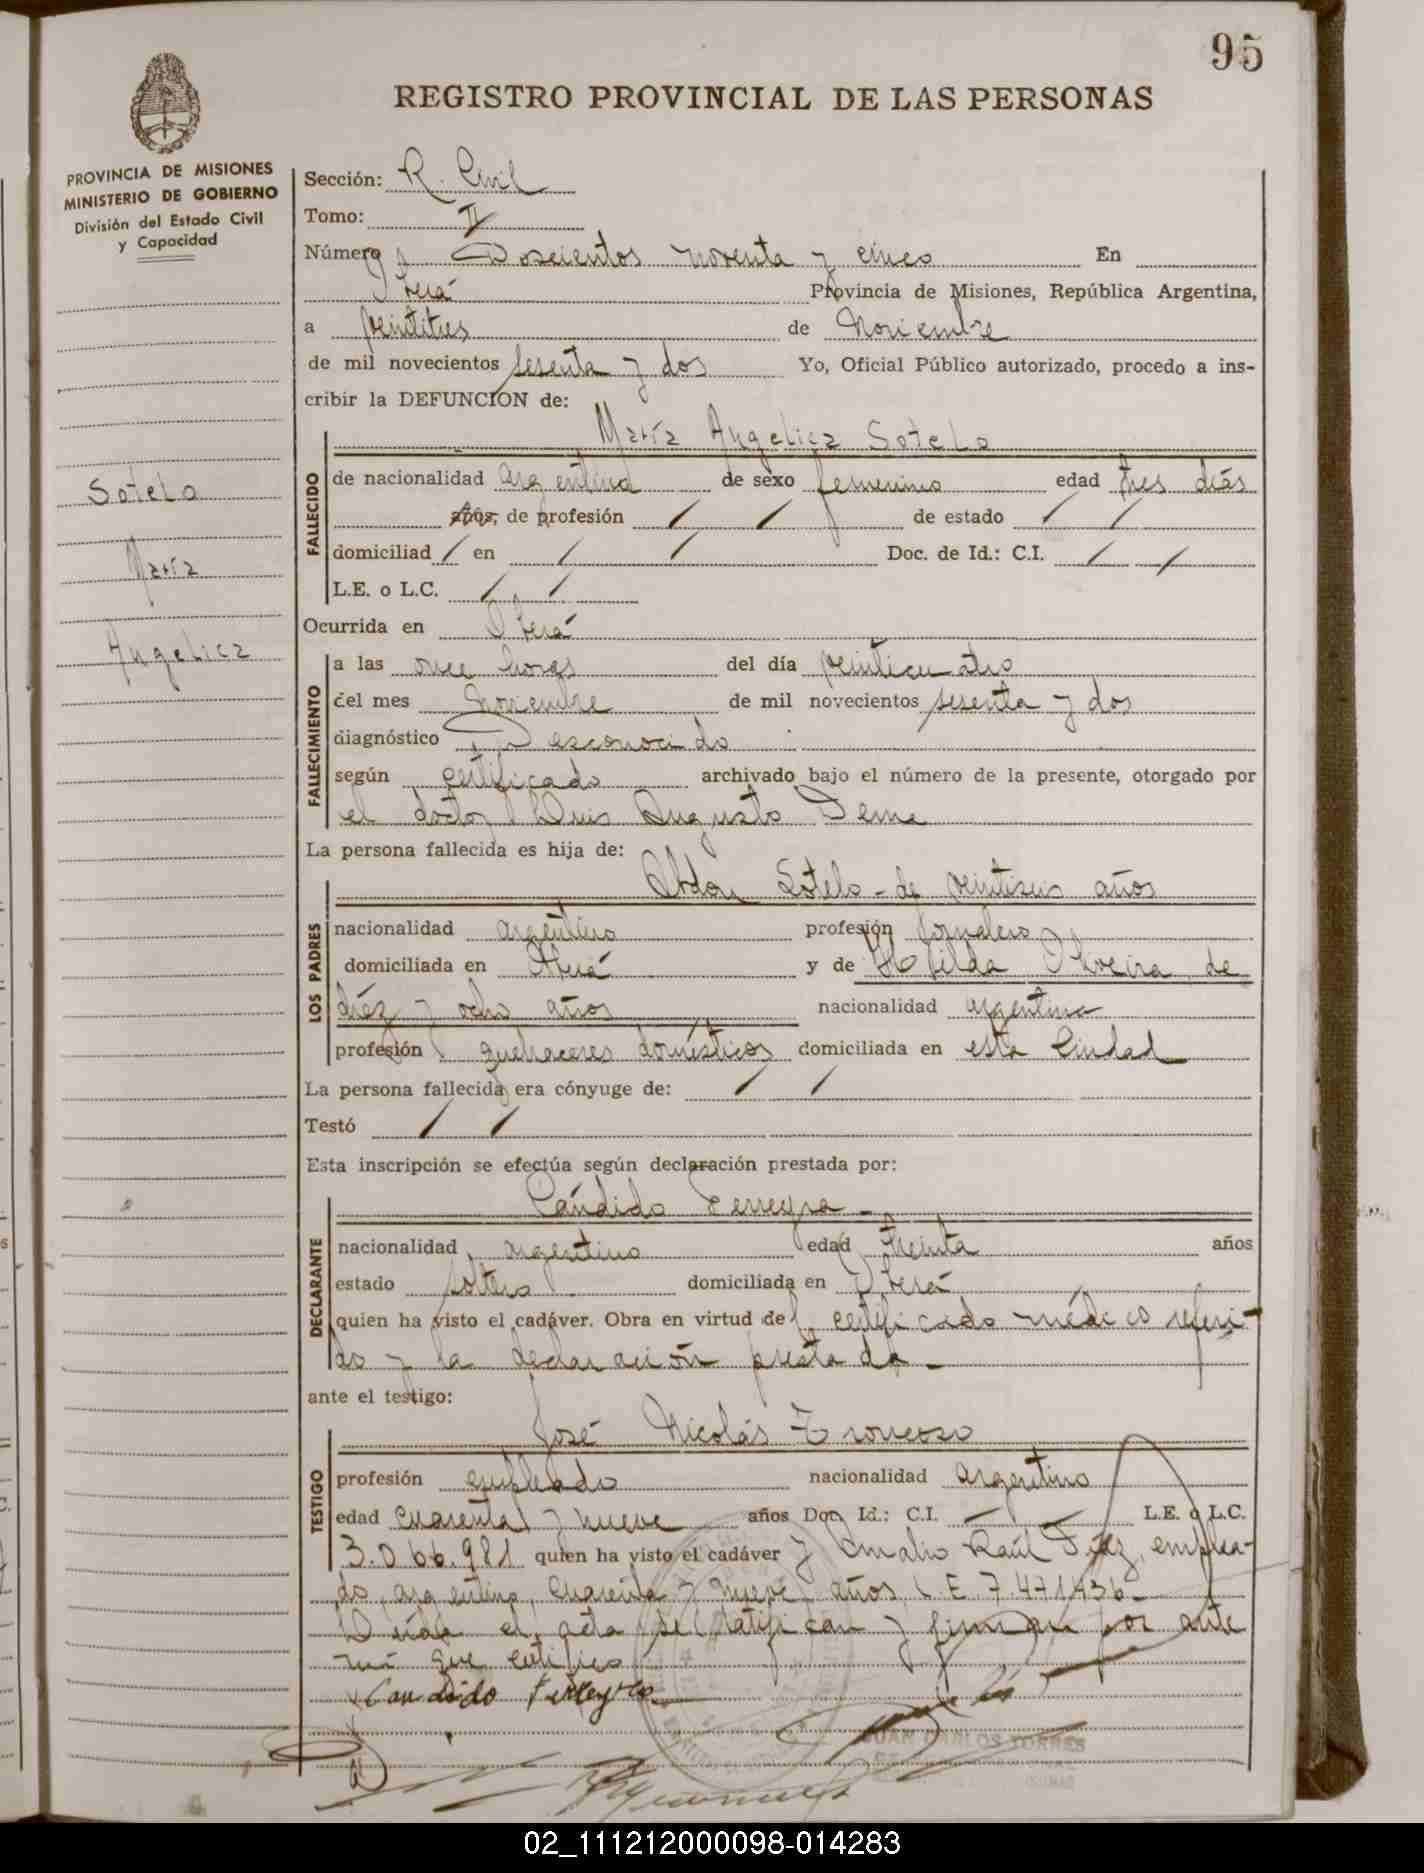 95
REGISTRO PROVINCIAL DE LAS PERSONAS
PROVINCIA DE MISIONES
MINISTERIO DE GOBIERNO
División del Estado Civil
y Capacidad
Sotelo
María
Angelica
Sección: R. Civil
Tomo: II
Número Doscientos noventa y cinco En
Oberá Provincia de Misiones, República Argentina,
a veintitres de Noviembre
de mil novecientos sesenta y dos Yo, Oficial Público autorizado, procedo a ins-
cribir la DEFUNCION de:
María Angelica Sotelo
FALLECIDO
de nacionalidad argentina de sexo femenino edad tres días
años, de profesión / / de estado / /
domiciliad / en / / Doc. de Id.: C.I. / /
L.E. o L.C. / /
Ocurrida en Oberá
FALLECIMIENTO
a las once horas del día veinticuatro
del mes Noviembre de mil novecientos sesenta y dos
diagnóstico Desconocido
según certificado archivado bajo el número de la presente, otorgado por
el doctor Luis Augusto
La persona fallecida es hija de:
LOS PADRES
Abdon Sotelo - de veintiseis años
nacionalidad argentino profesión jornalero
domiciliada en Oberá y de Hilda Oliveira de
diéz y ocho años nacionalidad argentina
profesión quehaceres domésticos domiciliada en esta Ciudad
La persona fallecida era cónyuge de: / /
Testó / /
Esta inscripción se efectúa según declaración prestada por:
DECLARANTE
Cándido Ferreyra -
nacionalidad argentino edad treinta años
estado soltero domiciliada en Oberá
quien ha visto el cadáver. Obra en virtud del certificado médico referi-
do y la declaración prestada -
ante el testigo:
TESTIGO
José Nicolás Troncoso
profesión empleado nacionalidad argentino
edad cuarenta y nueve años Doc. Id.: C.I. — — L.E. o L.C.
3.066.981 quien ha visto el cadáver y Amalio Raúl Díaz, emplea-
do, argentino, cuarenta y nueve años L.E. 7.471.436-
Leída el acta se ratifican y firman por ante
mí que certifico
Candido Ferreyra
JUAN CARLOS TORRES
02_111212000098-014283